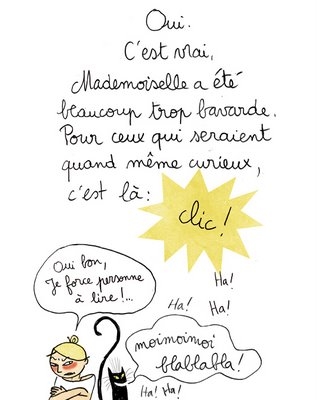 Oui.
C'est vrai,
Mademoiselle a été
beaucoup trop bavarde.
Pour ceux qui seraient
quand même curieux,
c'est là:
clic!
Oui bon,
Je force personne
à lire!...
Ha!
Ha!
Ha!
moimoimoi
blablabla!
Ha! Ha!